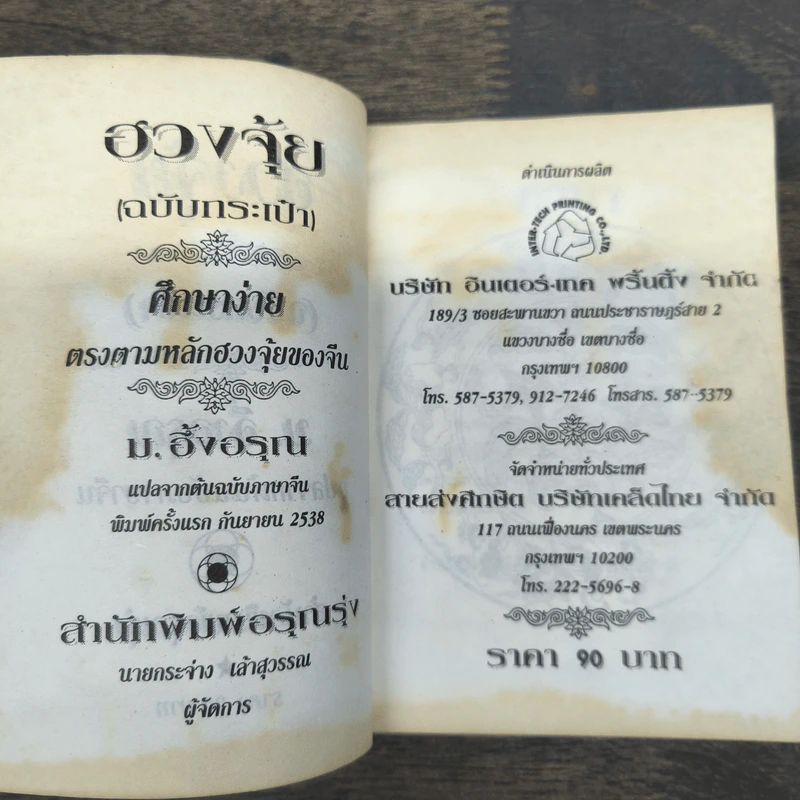 ฮวงจุ้ย
(ฉบับกระเป๋า)
ศึกษาง่าย
ตรงตามหลักฮวงจุ้ยของจีน
ม. อึ้งอรุณ
แปลจากต้นฉบับภาษาจีน
พิมพ์ครั้งแรก กันยายน 2538
สำนักพิมพ์อรุณรุ่ง
นายกระจ่าง เล้าสุวรรณ
ผู้จัดการ
ดำเนินการผลิต
INTER-TECH PRINTING CO., LTD.
บริษัท อินเตอร์-เทค พริ้นติ้ง จำกัด
189/3 ซอยสะพานขวา ถนนประชาราษฎร์สาย 2
แขวงบางซื่อ เขตบางซื่อ
กรุงเทพฯ 10800
โทร. 587-5379, 912-7246 โทรสาร. 587-5379
จัดจำหน่ายทั่วประเทศ
สายส่งศึกษิต บริษัทเคล็ดไทย จำกัด
117 ถนนเฟื่องนคร เขตพระนคร
กรุงเทพฯ 10200
โทร. 222-5696-8
ราคา 90 บาท